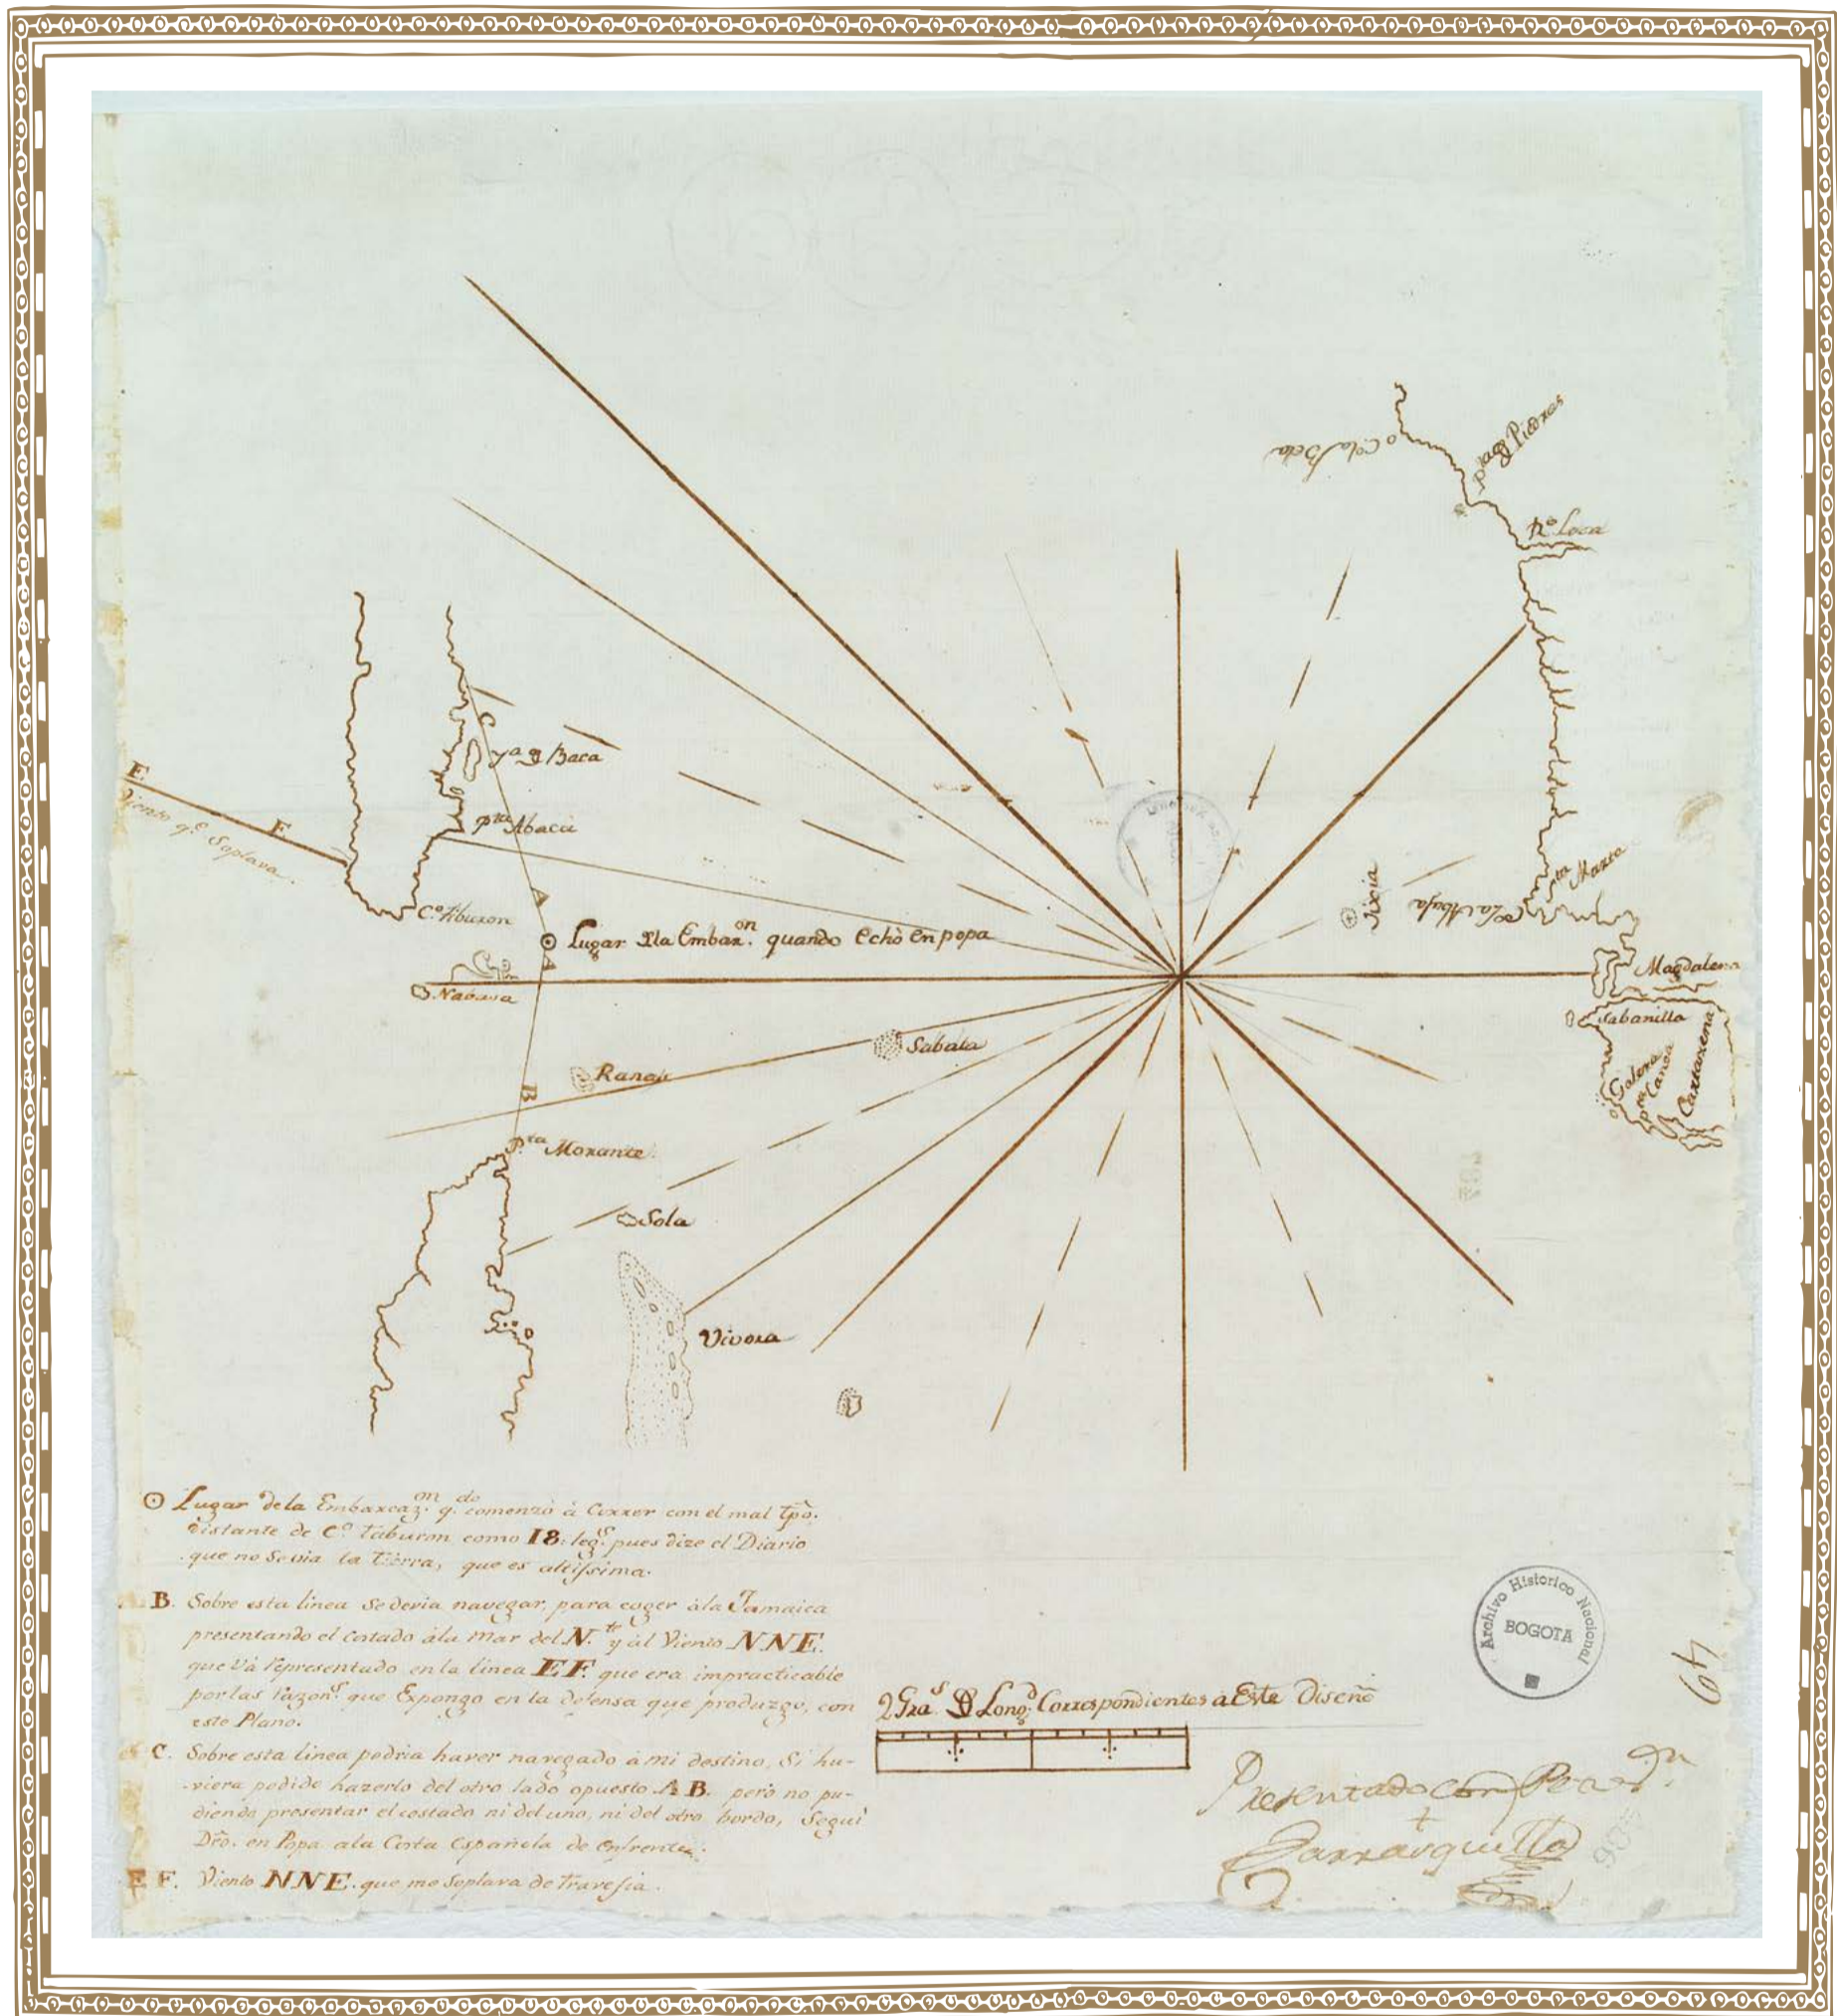 Cº la Bela
pta de Piedras
Rº Loca
C
ya de Baca
E
Viento q.e Soplava.
F
pta Abacù
Cº tiburon
A
Sta Marta
Cº la Abuja
Lugar Dla Embaron. quando echò en popa
A
Magdalena
Nabasa
Sabanilla
Sabala
Galera
pta Canoa
Cartaxena
Ranas
B
Pta Morante
Sola
Vivora
Lugar dela Embarcazon. q.do comenzò à Correr con el mal tpõ.
distante de Cº Taburon como 18. legs. pues dize el Diario
que no se via la tierra, que es altissima.
B. Sobre esta linea se devia navegar, para coger àla Jamaica
presentando el costado àla mar del N.te y àl Viento NNE.
que và representado en la linea EF. que era impracticable
por las razons. que Expongo en la defensa que produzgo, con
este Plano.
C. Sobre esta linea podria haver navegado à mi destino, Si hu-
viera podido hazerlo del otro lado opuesto AB. però no pu-
diendo presentar el costado ni del uno, ni del otro bordo, Segui
Dro. en Popa ala Costa Española de enfrente.
EF. Viento NNE. que me Soplava de travesia.
2 Gras. De Longd. Correspondientes à Este Diseño
Archivo Historico Nacional
BOGOTA
49
Presentado con
Carrasquilla